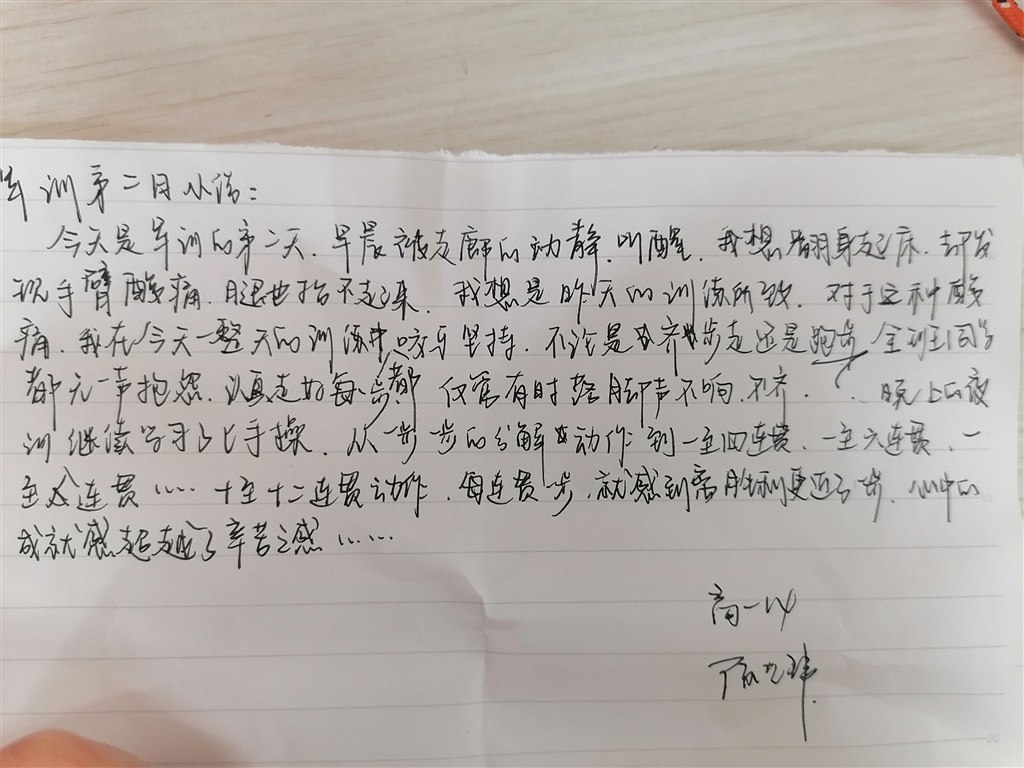 军训第二日小结:
今天是军训的第二天,早晨被走廊的动静,叫醒,我想翻身起床,却发
现手臂酸痛,腿也抬不起来,我想是昨天的训练所致,对于这种酸
痛,我在今天一整天的训练中咬牙坚持,不论是齐步走还是跑步,全班同学
都无一声抱怨,认真走好每一步,仅管有时踏脚声不响,不齐.晚上的夜
训继续学习了匕手操,从一步一步的分解动作到一至四连贯,一至六连贯,一
至八连贯……十至十二连贯动作,每连贯一步,就感到离胜利更近了一步,心中的
成就感超越了辛苦之感……
高一14